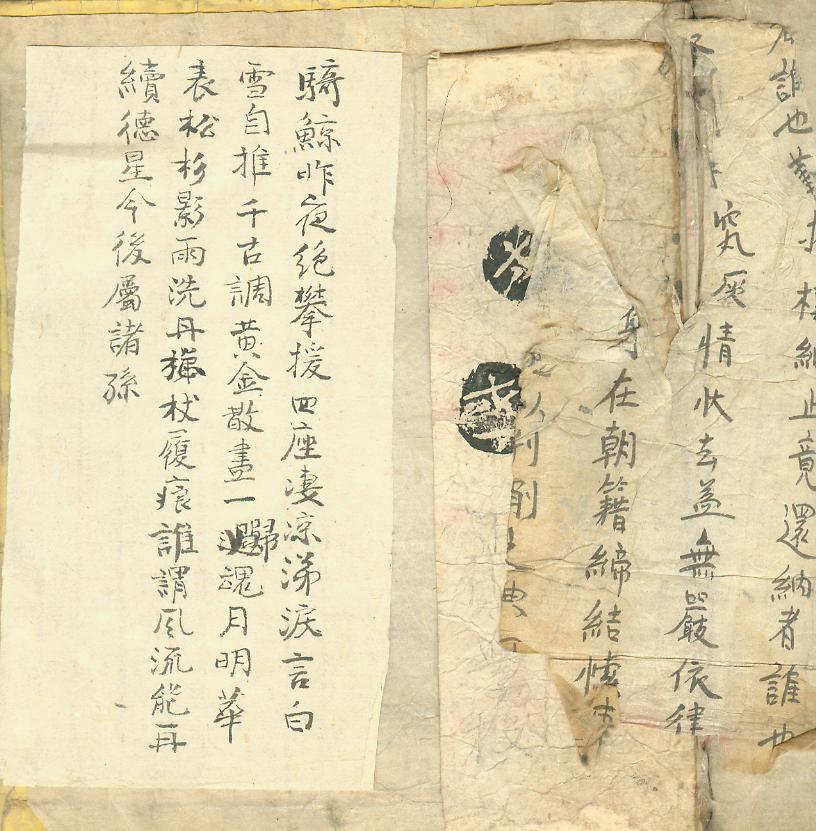 誰也納止竟還納者誰也
究厥情狀去益無嚴依律
身在朝籍締結
以典
騎鯨昨夜絶攀援四座凄凉涕淚言白
雪自推千古調黄金散盡一歸魂月明華
表松杉影雨洗丹梯杖履痕誰謂風流能再
續德星今後屬諸孫